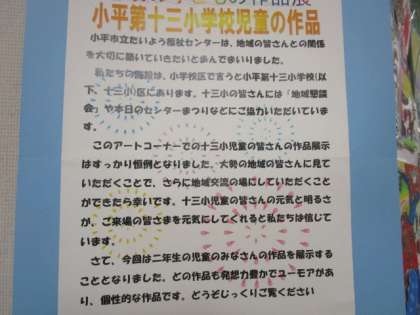 の作品展
小平第十三小学校児童の作品
小平市立たいよう福祉センターは、地域の皆さんとの関係
を大切に築いていきたいと歩んでまいりました。
私たちの施設は、小学校区で言うと小平第十三小学校(以
下、十三小)区にあります。十三小の皆さんには「地域懇談
会」や本日のセンターまつりなどにご協力いただいていま
す。
このアートコーナーでの十三小児童の皆さんの作品展示
はすっかり恒例となりました。大勢の地域の皆さんに見て
いただくことで、さらに地域交流の場にしていただくこと
ができたら幸いです。十三小児童の皆さんの元気と明るさ
が、ご来場の皆さまを元気にしてくれると私たちは信じて
います。
さて、今回は二年生の児童のみなさんの作品を展示する
こととなりました。どの作品も発想力豊かでユーモアがあ
り、個性的な作品です。どうぞじっくりご覧ください